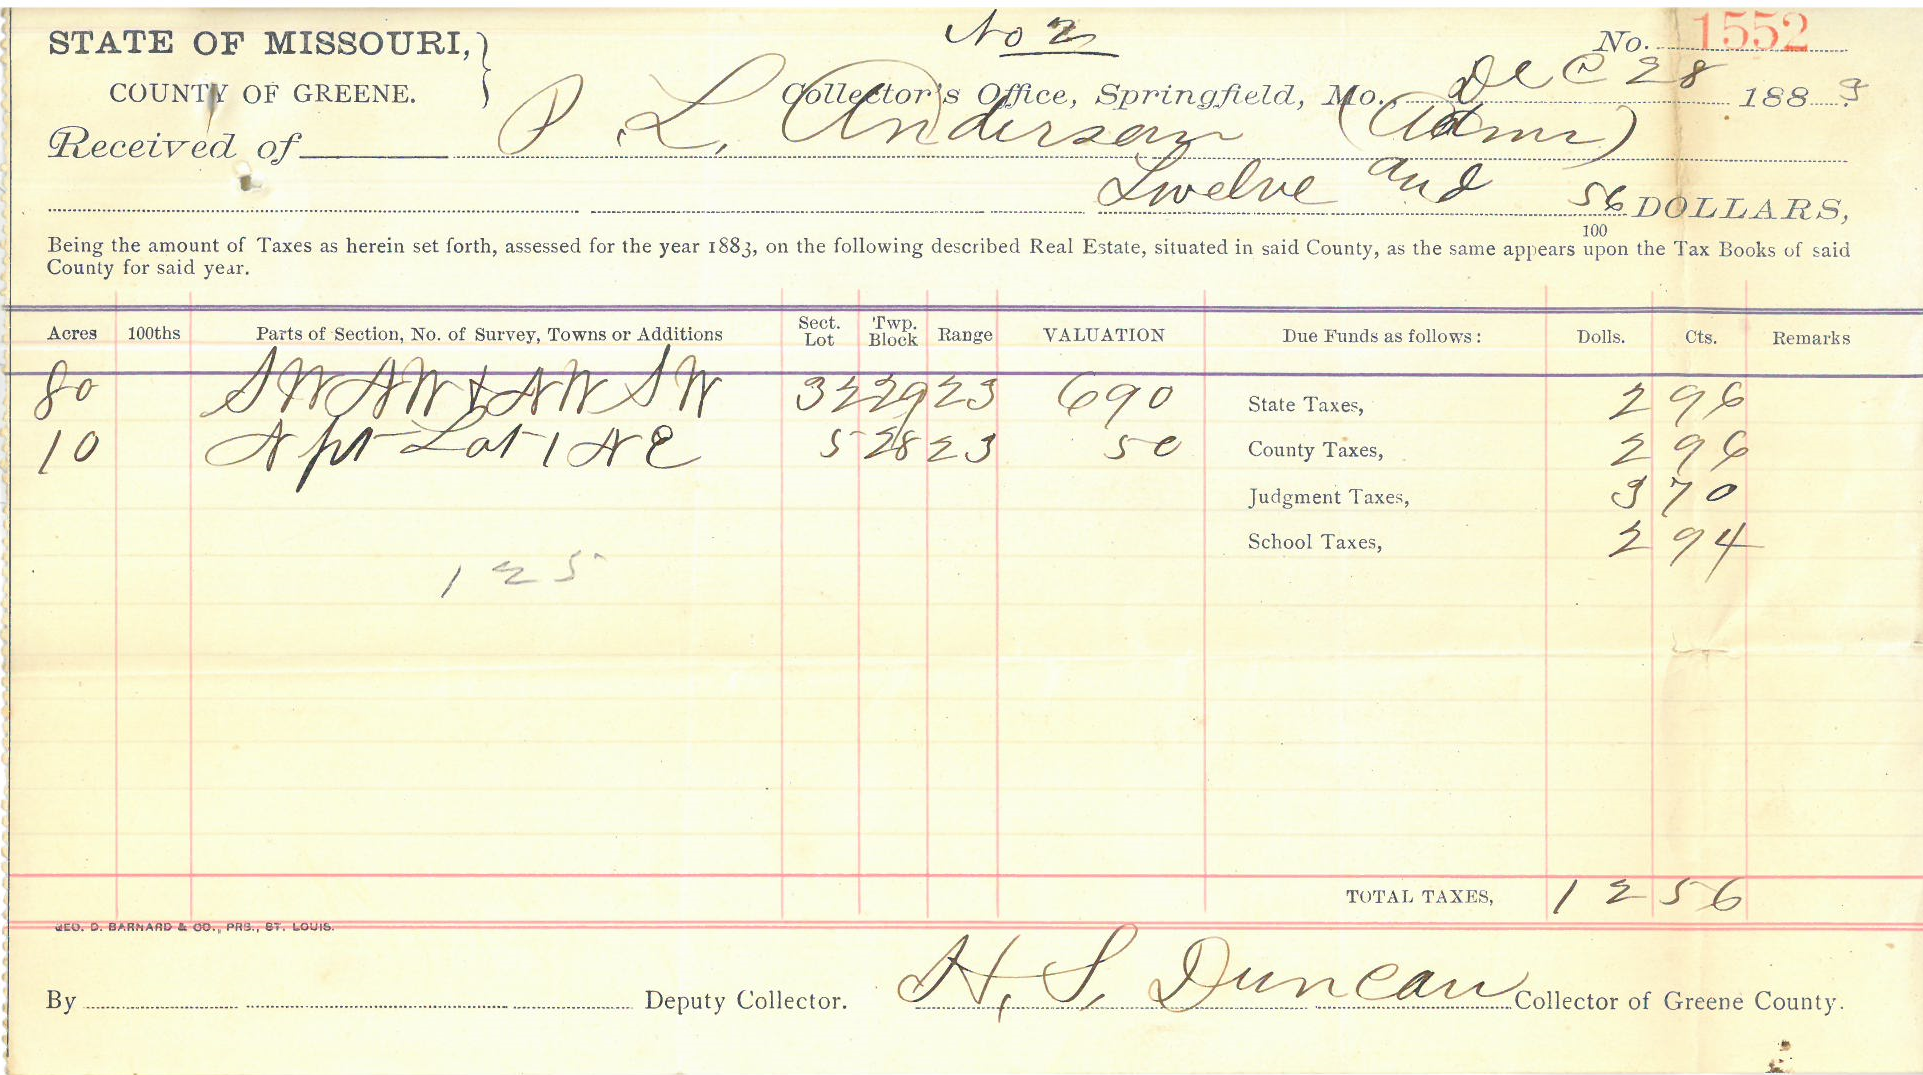 No 2
STATE OF MISSOURI, No. 1552
COUNTY OF GREENE. Collector's Office, Springfield, Mo. Dec 28 1883
Received of P. L. Anderson (Admr)
Twelve and 56/100 DOLLARS,
Being the amount of Taxes as herein set forth, assessed for the year 1883, on the following described Real Estate, situated in said County, as the same appears upon the Tax Books of said
County for said year.
Acres 100ths Parts of Section, No. of Survey, Towns or Additions Sect. Lot Twp. Block Range VALUATION Due Funds as follows: Dolls. Cts. Remarks
80 SW NW & NW SW 32 29 23 690 State Taxes, 2 96
10 N pt Lot 1 NE 5 28 23 50 County Taxes, 2 96
Judgment Taxes, 3 70
School Taxes, 2 94
125
TOTAL TAXES, 12 56
GEO. D. BARNARD & CO., PRS., ST. LOUIS.
By Deputy Collector. H. S. Duncan Collector of Greene County.